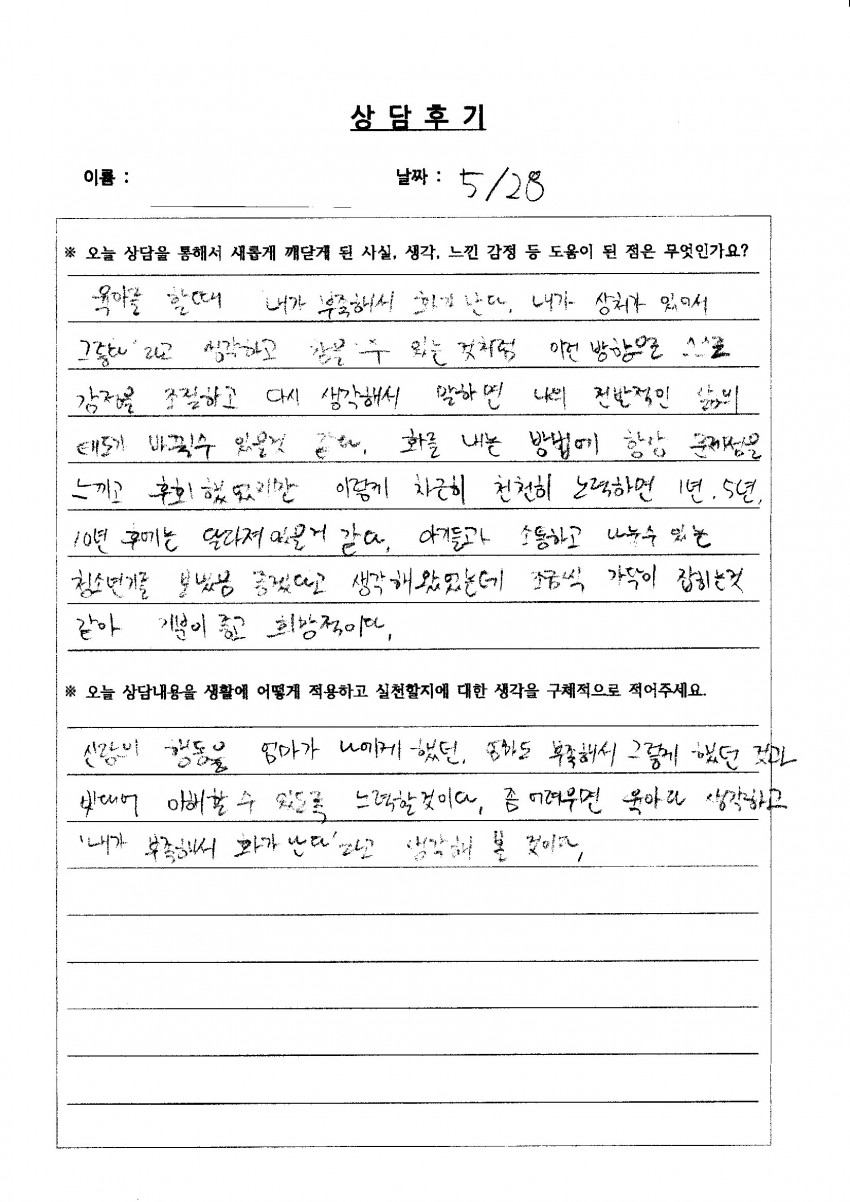 상 담 후 기
이름 :
날짜 : 5/28
※ 오늘 상담을 통해서 새롭게 깨닫게 된 사실, 생각, 느낀 감정 등 도움이 된 점은 무엇인가요?
육아를 할때 내가 부족해서 화가 난다, 내가 상처가 있어서
그렇다' 라고 생각하고 참을 수 있는 것처럼 이런 방향으로 스스로
감정을 조절하고 다시 생각해서 말하면 나의 전반적인 삶의
태도가 바뀔수 있을것 같다. 화를 내는 방법에 항상 문제점을
느끼고 후회했었지만 이렇게 차근히 천천히 노력하면 1년, 5년,
10년 후에는 달라져 있을거 같다. 아기들과 소통하고 나눌수 있는
청소년기를 보냈음 좋겠다고 생각해왔었는데 조금씩 가닥이 잡히는것
같아 기분이 좋고 희망적이다.
※ 오늘 상담내용을 생활에 어떻게 적용하고 실천할지에 대한 생각을 구체적으로 적어주세요.
신랑의 행동을 엄마가 나에게 했던, 엄마도 부족해서 그렇게 했던 것과
빗대어 이해할 수 있도록 노력할것이다. 좀 어려우면 육아다 생각하고
'내가 부족해서 화가 난다'라고 생각해 볼 것이다.